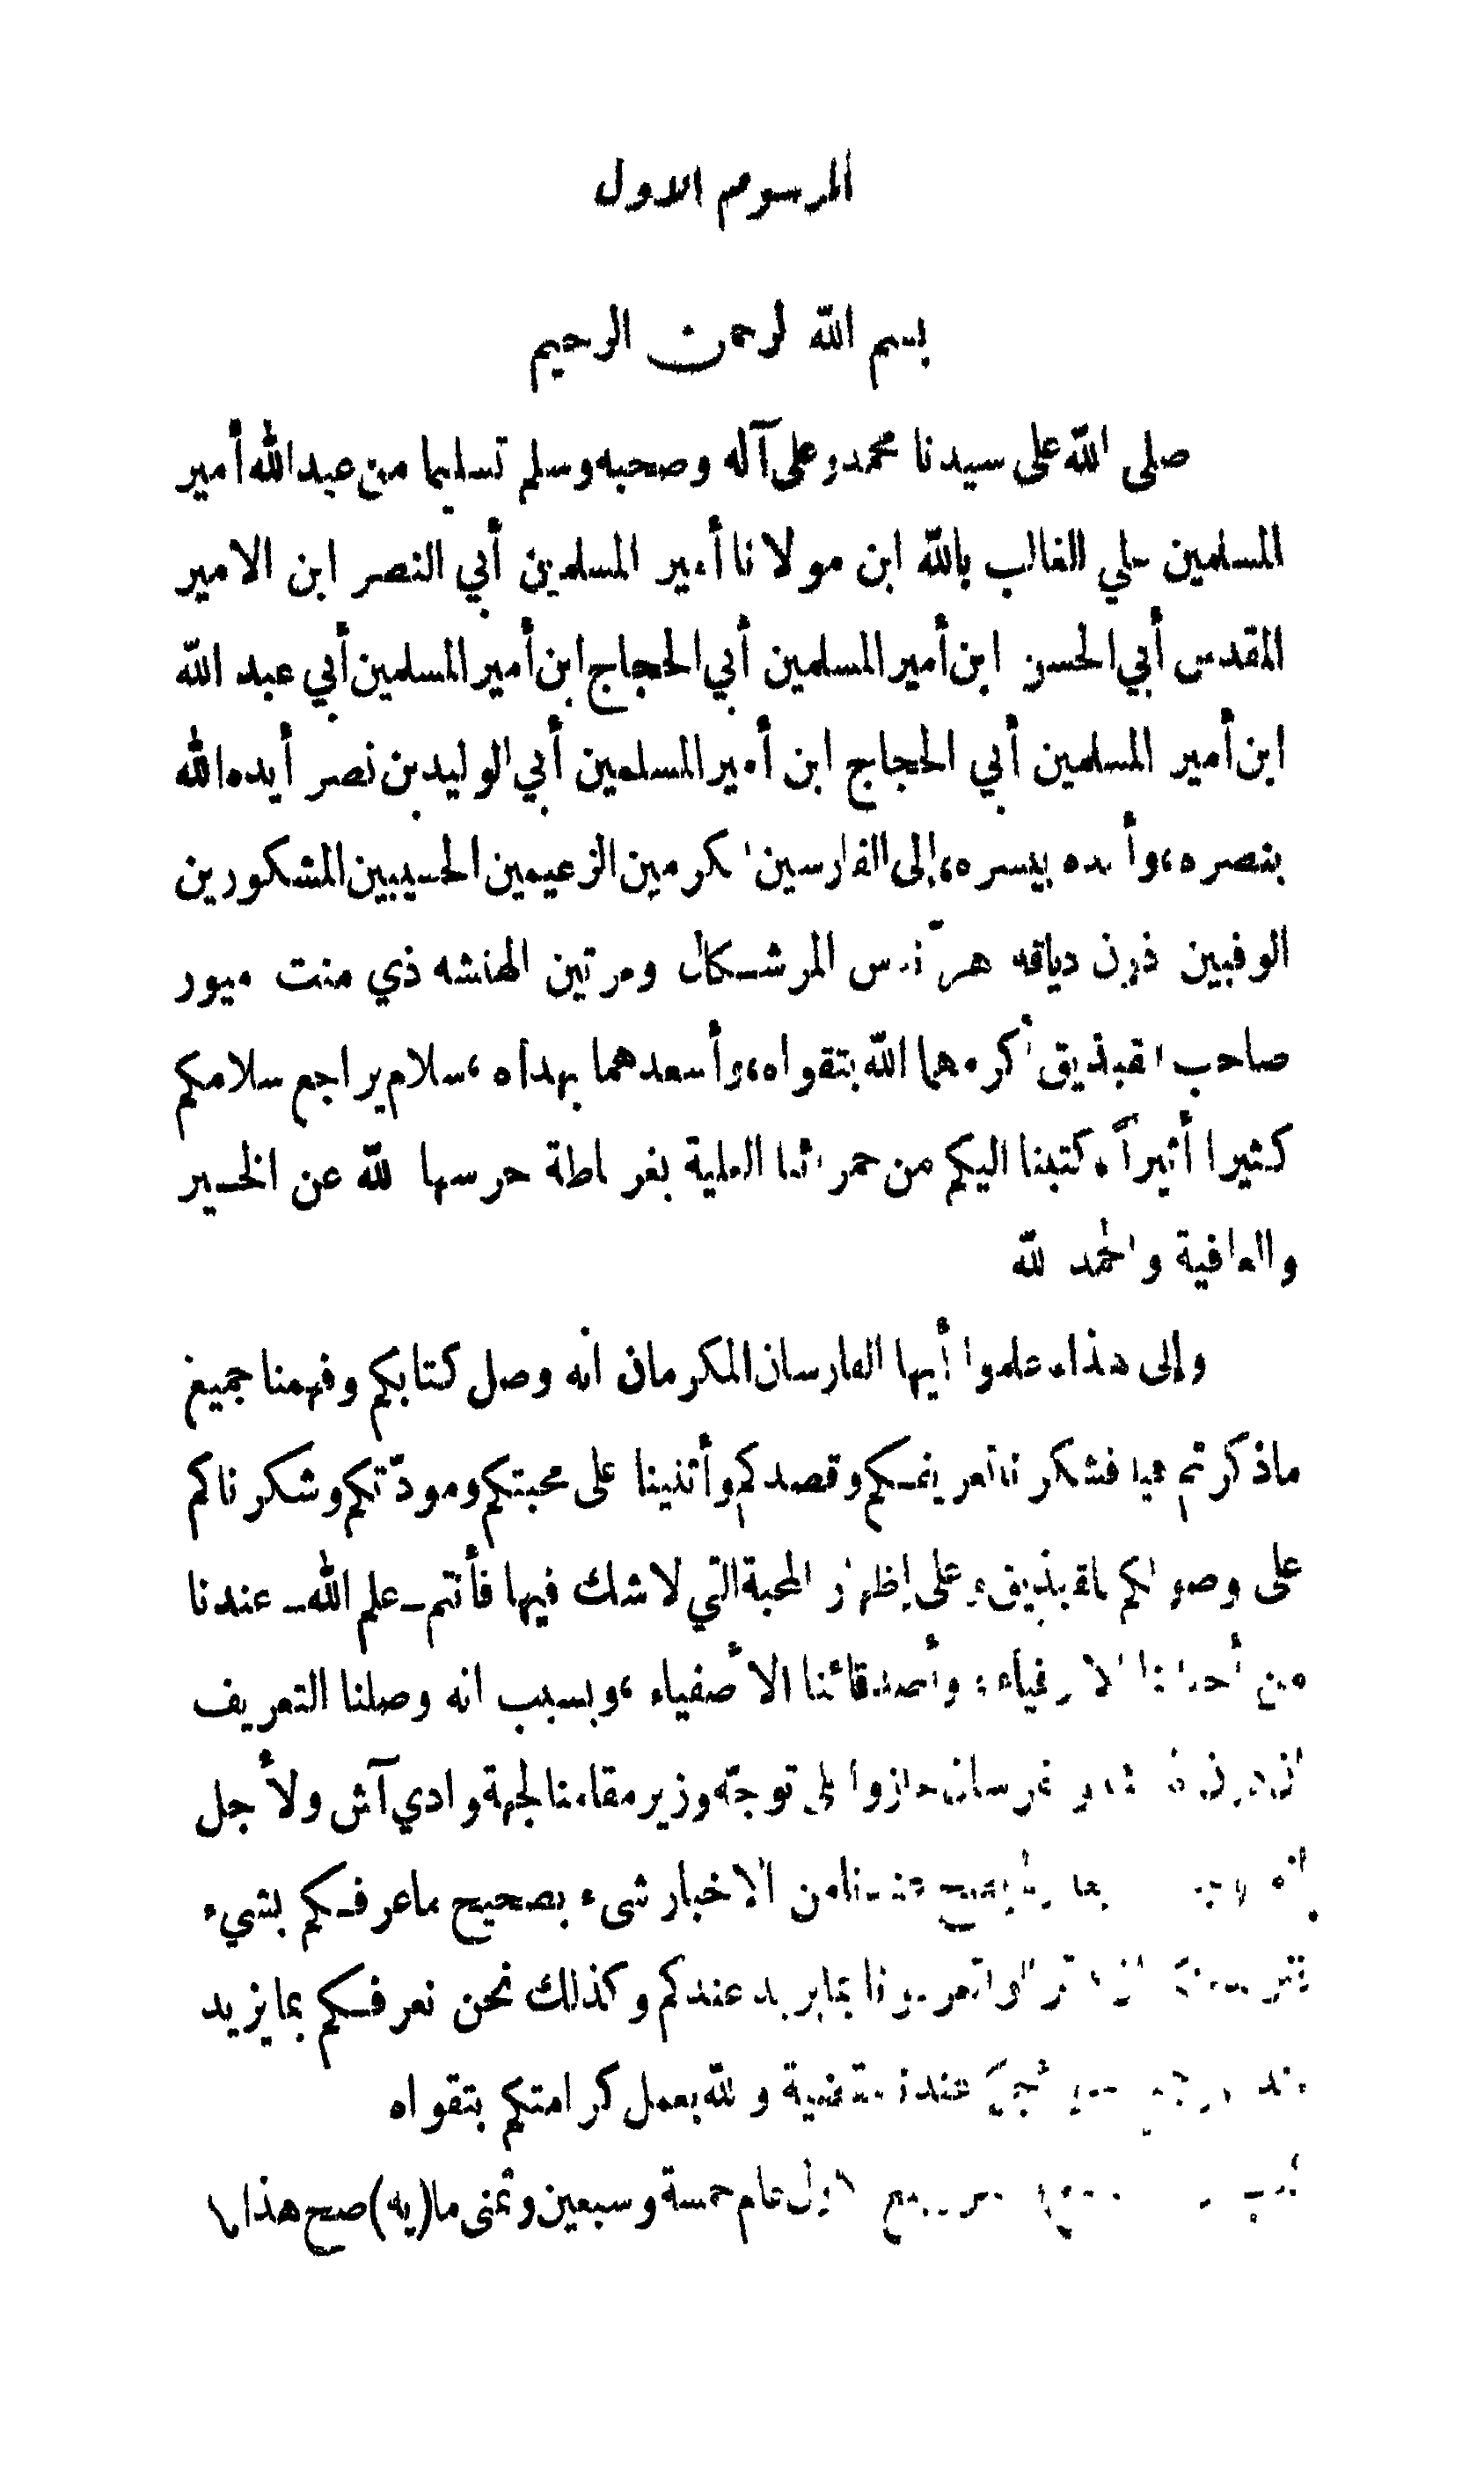 المرسوم الاول
بسم الله الرحمن الرحيم
صلى الله على سيدنا محمد وعلى آله وصحبه وسلم تسليما من عبد الله أمير
المسلمين علي الغالب بالله ابن مولانا أمير المسلمين أبي النصر ابن الامير
المقدس أبي الحسن ابن أمير المسلمين أبي الحجاج ابن أمير المسلمين أبي عبد الله
ابن أمير المسلمين أبي الحجاج ابن أمير المسلمين أبي الوليد بن نصر أيده الله
بنصره، وأمده بيسره، إلى الفارسين المكرمين الزعيمين الحسيبين المشكورين
الوفيين ذون دياقه المرشكال ومرتين الهنشه ذي منت ميور
صاحب القبذيق أكرمهما الله بتقواه، وأسعدهما بهداه، سلام يراجع سلامكم
كثيرا أثيراً. كتبنا اليكم من حمرائنا العلية بغرناطة حرسها الله عن الخير
والعافية والحمد لله
وإلى هذا، علموا أيها الفارسان المكرمان انه وصل كتابكم وفهمنا جميع
ماذكرتم فيه فشكرنا تعريفكم وقصدكم وأثنينا على محبتكم ومودّتكم وشكرناكم
على وصولكم القبذيق، وعلى إظهار المحبة التي لاشك فيها فأنتم ـ علم الله ـ عندنا
من أحبابنا الاوفياء، وأصدقائنا الأصفياء، وبسبب انه وصلنا التعريف
فرسان جازوا إلى توجّه وزير مقامنا لجهة وادي آش ولأجل
من الاخبار شىء بصحيح ماعرفكم بشيء
بما يريد عندكم وكذلك نحن نعرفكم بما يزيد
عندنا والله بعمل كرامتكم بتقواه
ربيع الاول عام خمسة وسبعين وثمنى ما(يه) صح هذا